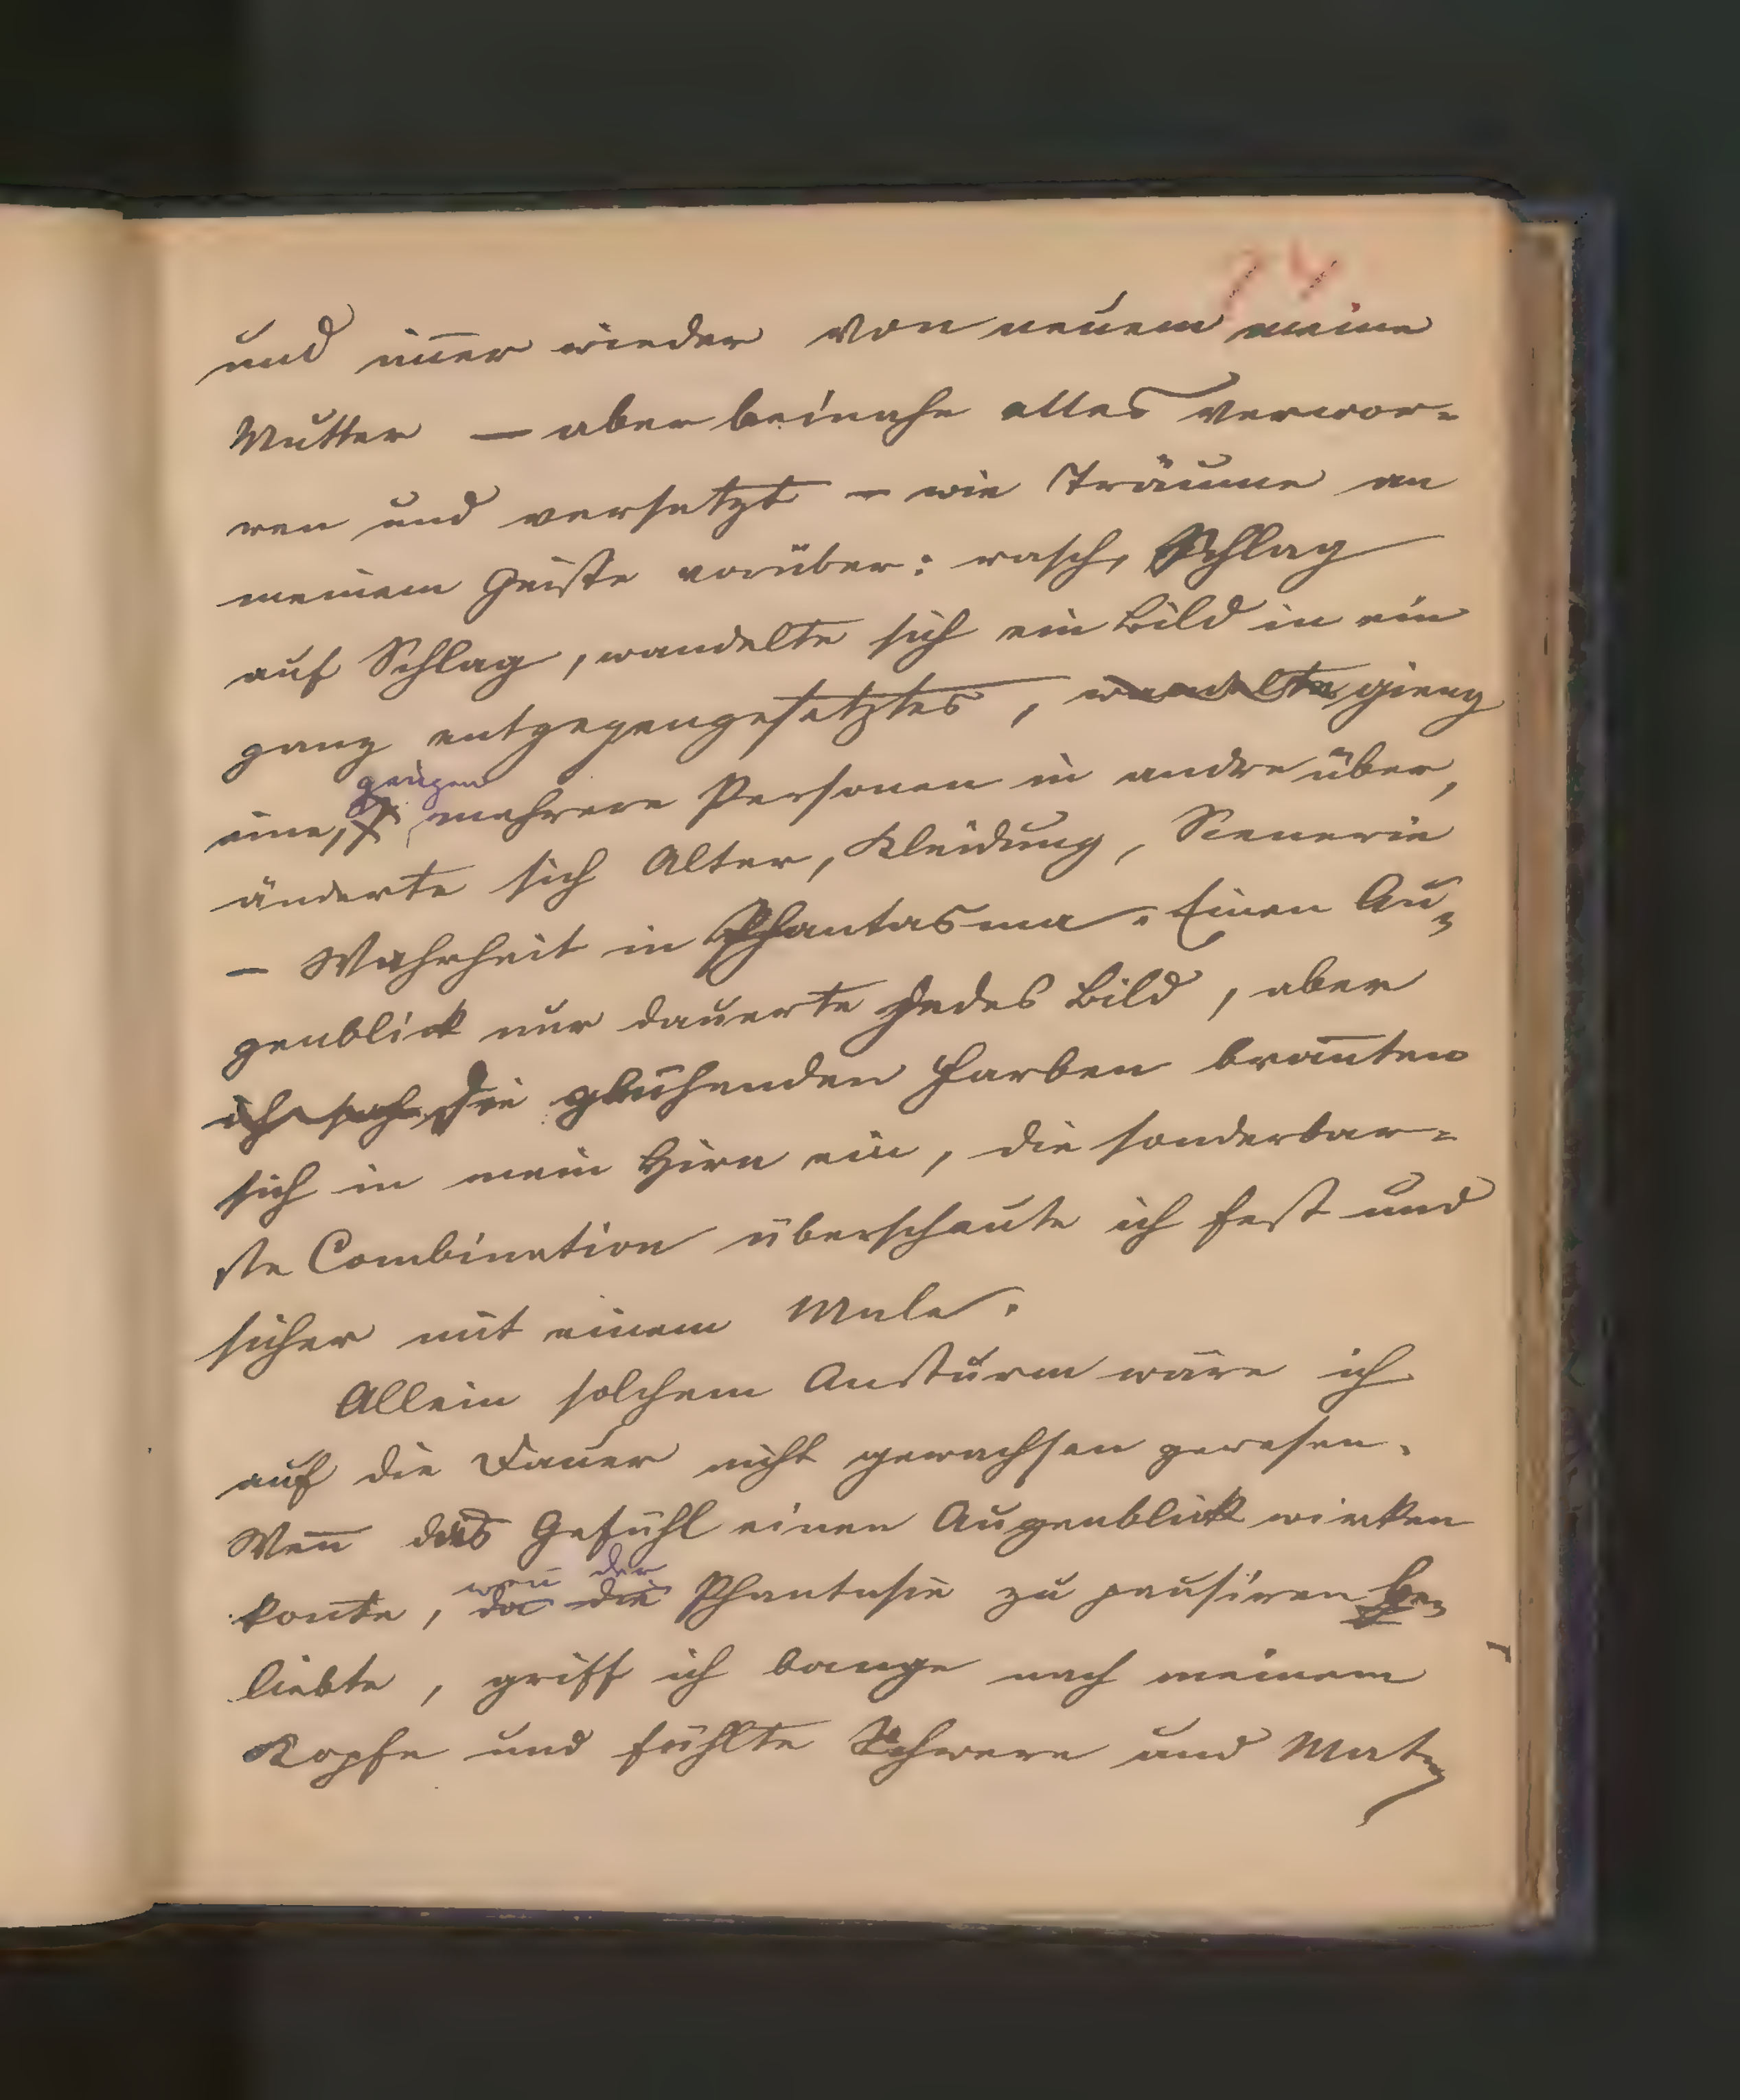 74
und im̅er wieder von neuem meine
Mutter — aber beinahe alles verwor-
ren und versetzt – wie Träume an
meinem Geiste vorüber: rasch, Schlag
auf Schlag, wandelte sich ein Bild in ein
ganz entgegengesetztes, wandelte gieng
giengen
eine, mehrere Personen in andre über,
änderte sich Alter, Kleidung, Scenerie
– Wahrheit in Phantasma. Einen Au-
genblick nur dauerte jedes Bild, aber
ich sah die glühenden Farben bran̅ten
sich in mein Hirn ein, die sonderbar-
ste Combination überschaute ich fest und
sicher mit einem Male.
Allein solchem Ansturm wäre ich
auf die Dauer nicht gewachsen gewesen.
Wen̅ das Gefühl einen Augenblick wirken
wen̅ der
kon̅te, da die Phantasie zu pausiren be-
liebte, griff ich bange nach meinem
Kopfe und fühlte Schwere und Mat-